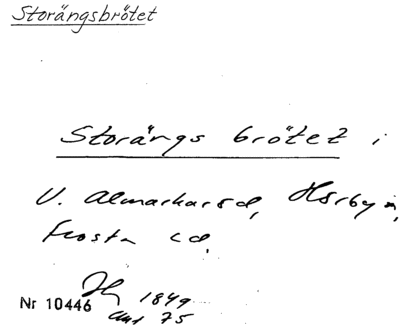 Storängsbrötet
Storängs brötet i
V. Almarkared, Hörby s,
Frosta hd.
Nr 10446
1849
75